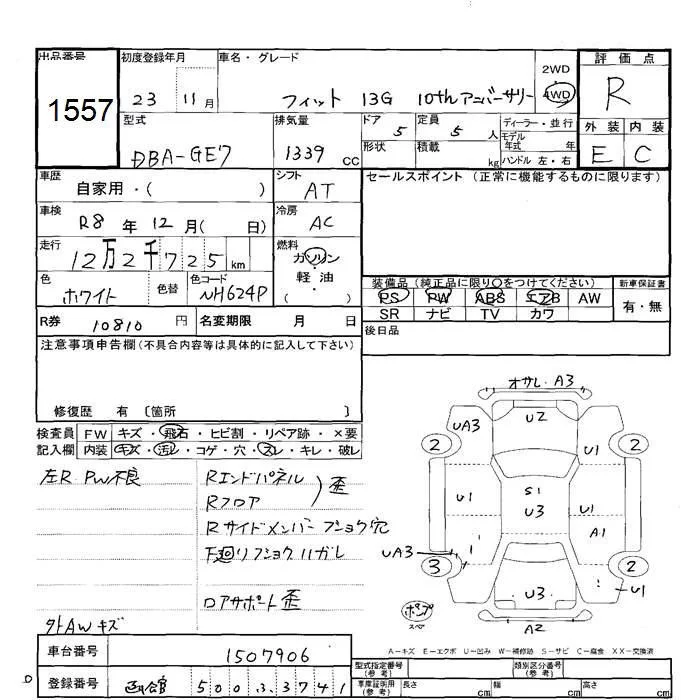 出品番号 初度登録年月 車名・グレード 2WD 評価点
1557 23 11月 フィット 13G 10thアニバーサリー 4WD R
型式 排気量 ドア 定員 ディーラー・並行 外装 内装
DBA-GE7 1339 cc 5 5 人 モデル年式 年 E C
形状 積載 kg ハンドル 左・右
車歴 シフト セールスポイント (正常に機能するものに限ります)
自家用・( ) AT
車検 冷房
R8 年 12 月( 日) AC
走行 燃料
12万2千725 km ガソリン
色 色替 色コード 軽油 装備品(純正品に限り○をつけてください) 新車保証書
ホワイト NH624P ( ) PS PW ABS エアB AW 有・無
SR ナビ TV カワ
R券 10810 円 名変期限 月 日 後日品
注意事項申告欄(不具合内容等は具体的に記入して下さい)
修復歴 有 〔箇所 〕
検査員 FW キズ・飛石・ヒビ割・リペア跡・×要
記入欄 内装 キズ・汚レ・コゲ・穴・スレ・キレ・破レ
左R PW不良 Rエンドパネル
Rフロア 歪
Rサイドメンバー フショク穴
下廻リフショクハガレ
ロアサポート歪
外AWキズ
オサレ・A3
UA3 U2
2 2
U1
U1 S1 U1
U3
A1
UA3
3 2
U3 U1
ポンプ
スペア
A2
A－キズ E－エクボ U－凹み W－補修跡 S－サビ C－腐食 XX－交換済
車台番号 1507906 型式指定番号(参考) 類別区分番号(参考)
登録番号 函館 500 3741 車庫証明用(参考) 長さ cm 幅 cm 高さ cm